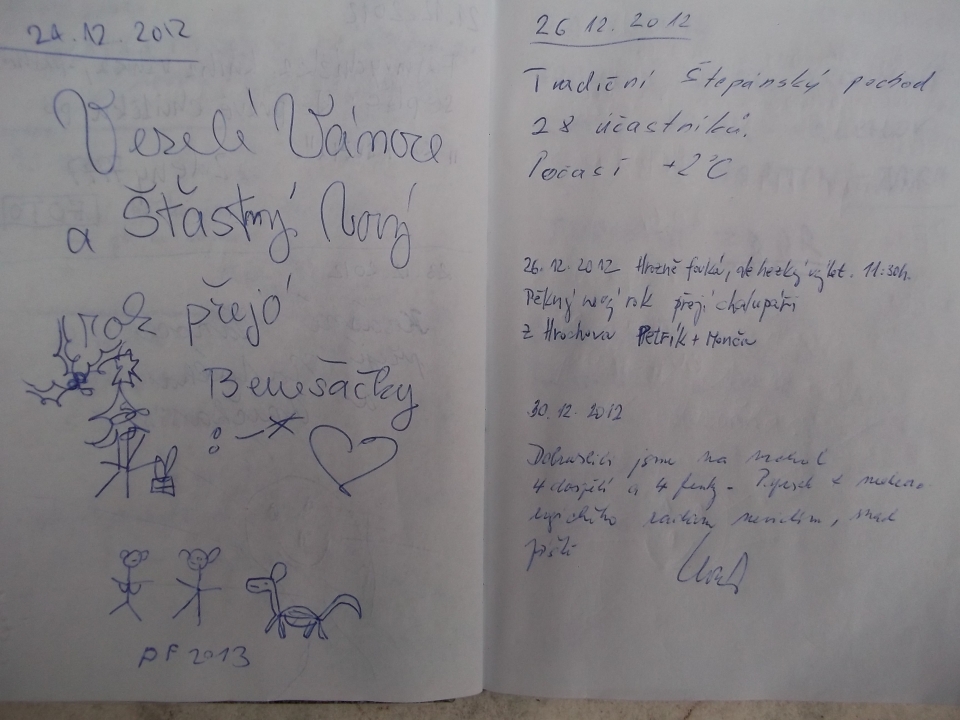 24.12.2012
Veselé Vánoce
a Šťastný Nový
rok přejó
Benešáčky
:-*
PF 2013
26 12. 2012
Tradiční Štěpánský pochod
28 účastníků.
Počasí +2°C
26.12.2012 Hrozně fouká, ale hezký výlet. 11:30h.
Pěkný nový rok přejí chalupáři
z Hrochova Petrík + Monča
30.12.2012
jsme na vrchol
4 dospělí a 4 fenky -
nevidím, snad
příště